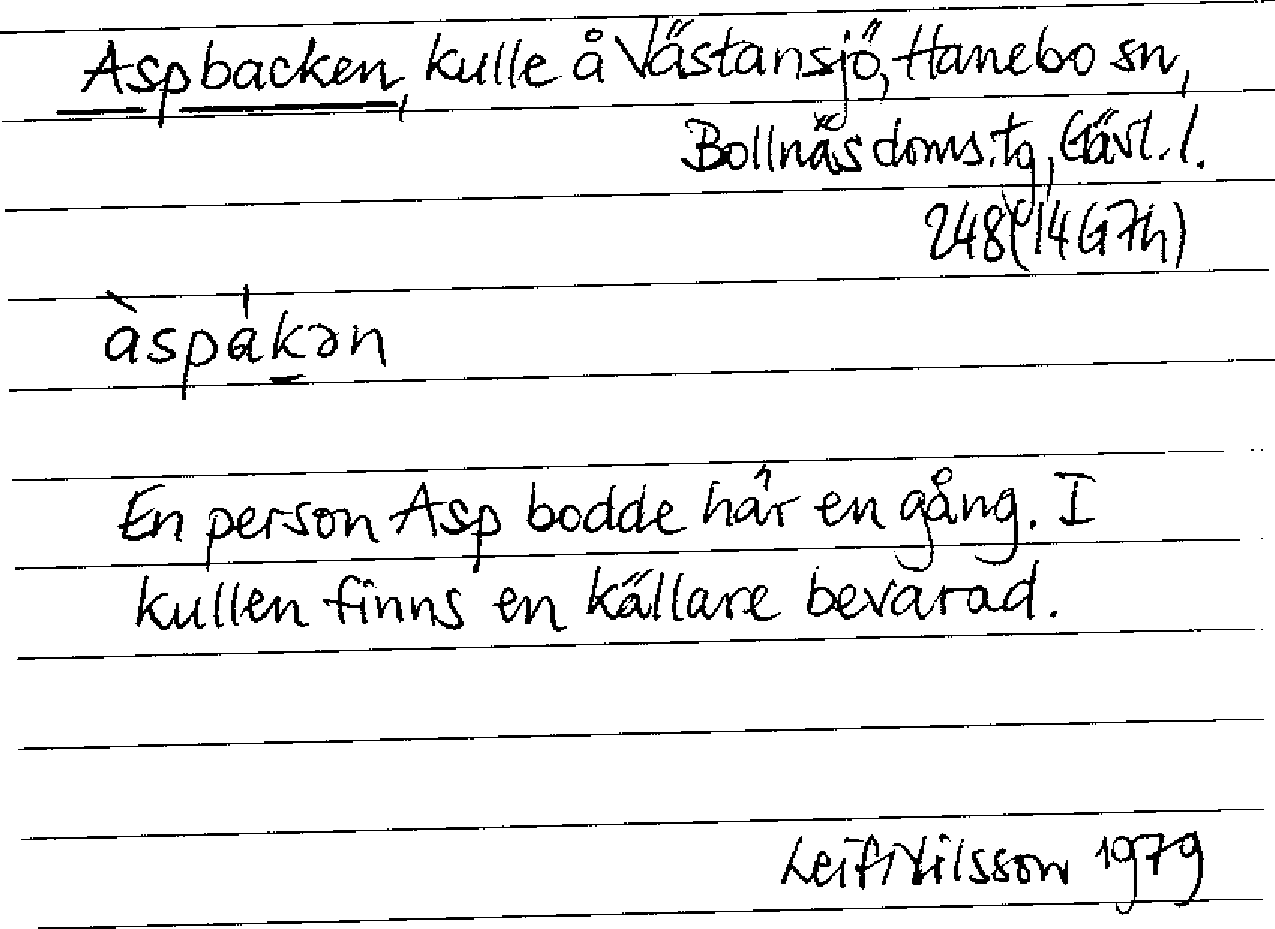 Aspbacken, kulle å Västansjö, Hanebo sn,
Bollnäs doms.tg, Gävl.l.
248 (14G7h)
àspákən
En person Asp bodde här en gång. I
kullen finns en källare bevarad.
Leif Nilsson 1979